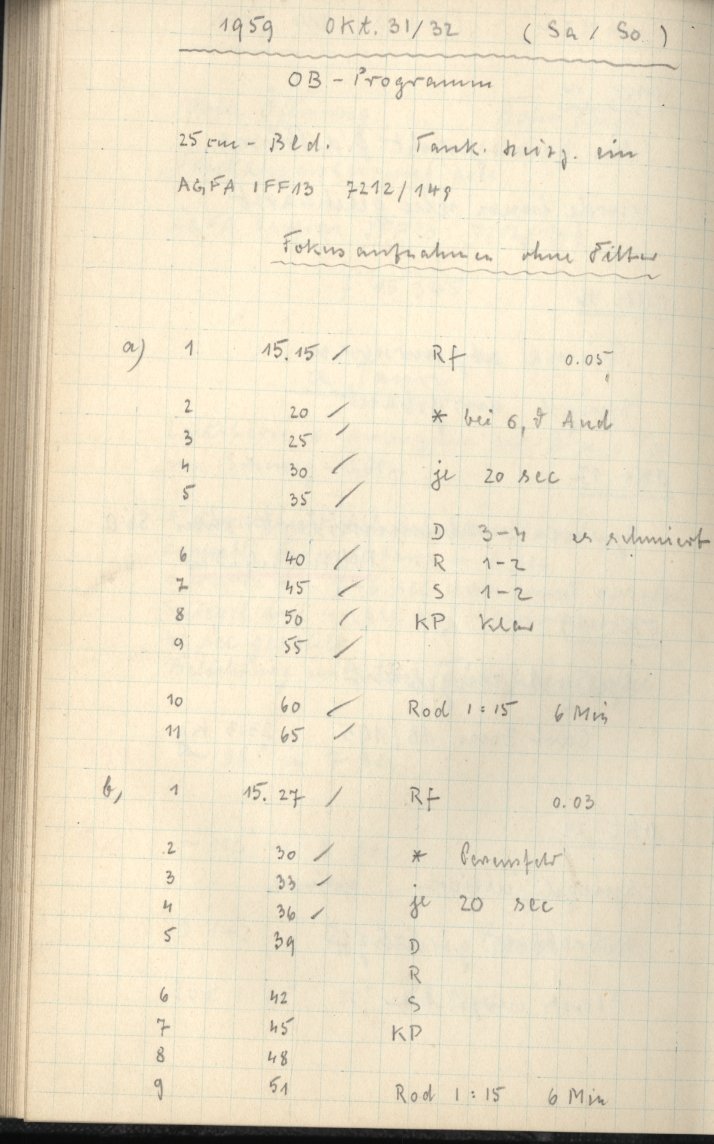 1959 Okt. 31/32 (Sa / So)
OB-Programm
25 cm-Bld. Tank. heizg. ein
AGFA IFF13 7212/149
Fokusaufnahmen ohne Filter
a) 1 15.15 / Rf 0.05
2 20 / * bei 6, ϑ And
3 25 /
4 30 / je 20 sec
5 35 /
D 3-4 es schmiert
6 40 / R 1-2
7 45 / S 1-2
8 50 / KP klar
9 55 /
10 60 / Rod 1:15 6 Min
11 65 /
b, 1 15.27 / Rf 0.03
2 30 / *
3 33 /
4 36 / je 20 sec
5 39 D
R
6 42 S
7 45 KP
8 48
9 51 Rod 1:15 6 Min